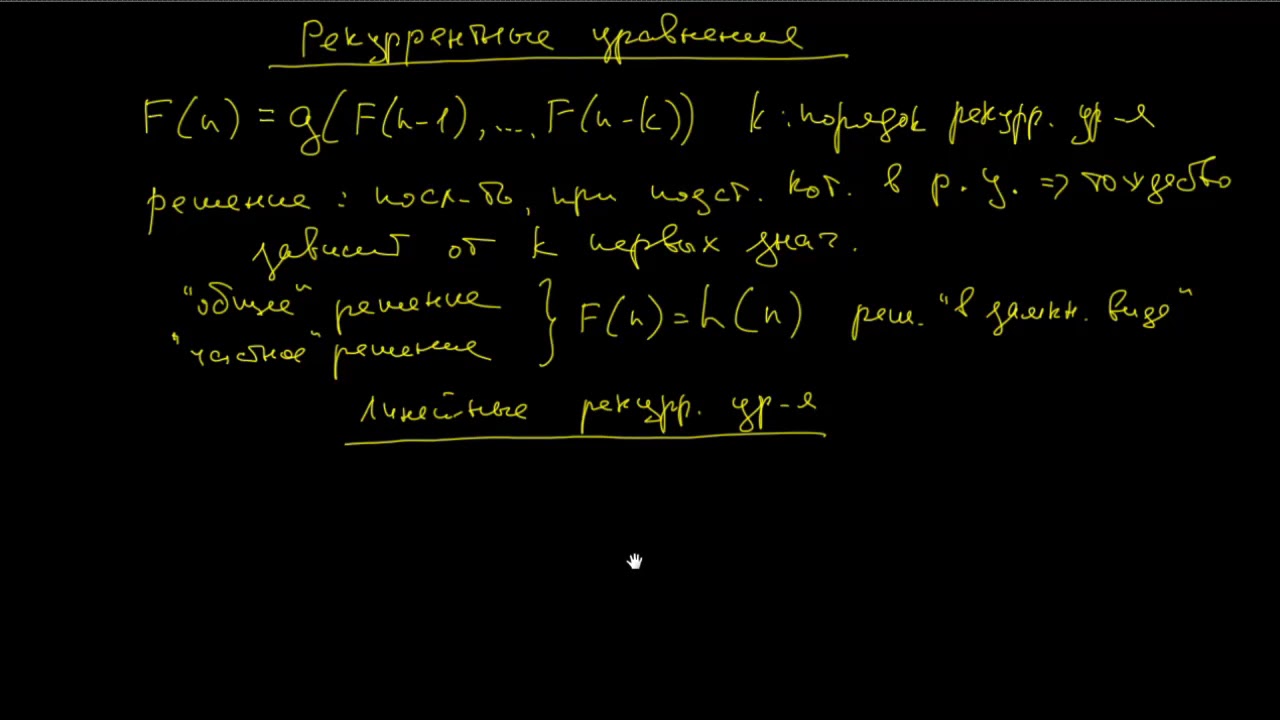 Рекуррентные уравнения
F(n) = g(F(n-1), ..., F(n-k)) k : порядок рекурр. ур-я
решение : посл-ть, при подст. кот. в р. у. => тождество
зависит от k первых знач.
"общее" решение } F(n) = h(n) реш. "в замкн. виде"
"частное" решение
Линейные рекурр. ур-я